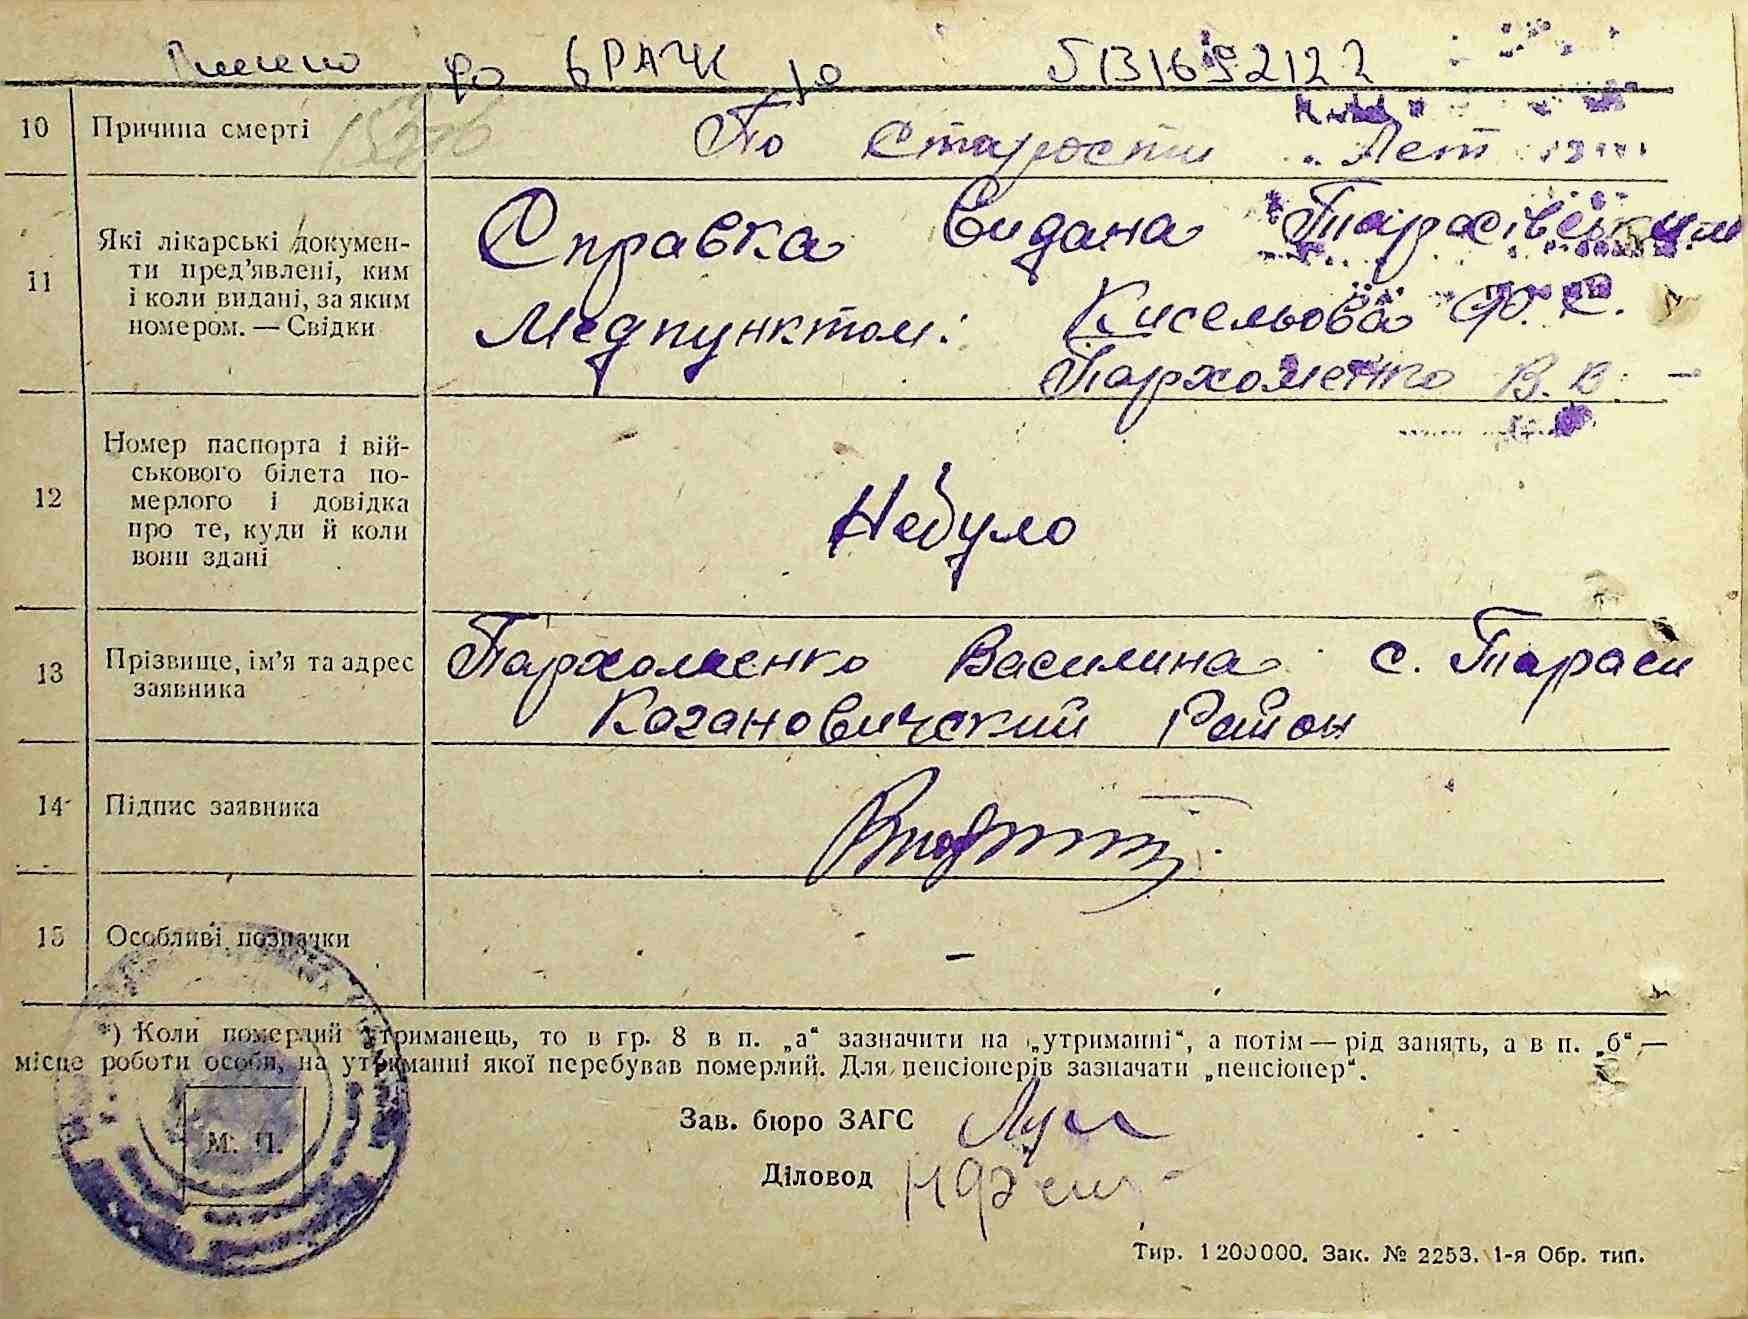 до БРАЧК
10 Причина смерті По Старости Лет
11 Які лікарські докумен-
ти пред'явлені, ким
і коли видані, за яким
номером. — Свідки
Справка Видана Тарасівським
Медпунктом: Кисельова Ф. С.
Пархоменко В. В. —
12 Номер паспорта і вій-
ськового білета по-
мерлого і довідка
про те, куди й коли
вони здані
Небуло
13 Прізвище, ім'я та адрес
заявника
Пархоменко Василина с. Тараси
Кагановичский Район
14 Підпис заявника
15 Особливі позначки —
*) Коли померлий утриманець, то в гр. 8 в п. „а“ зазначити на „утриманні“, а потім — рід занять, а в п. „б“ —
місце роботи особи, на утриманні якої перебував померлий. Для пенсіонерів зазначати „пенсіонер“.
Зав. бюро ЗАГС
Діловод
М. П.
Тир. 1200000. Зак. № 2253. 1-я Обр. тип.